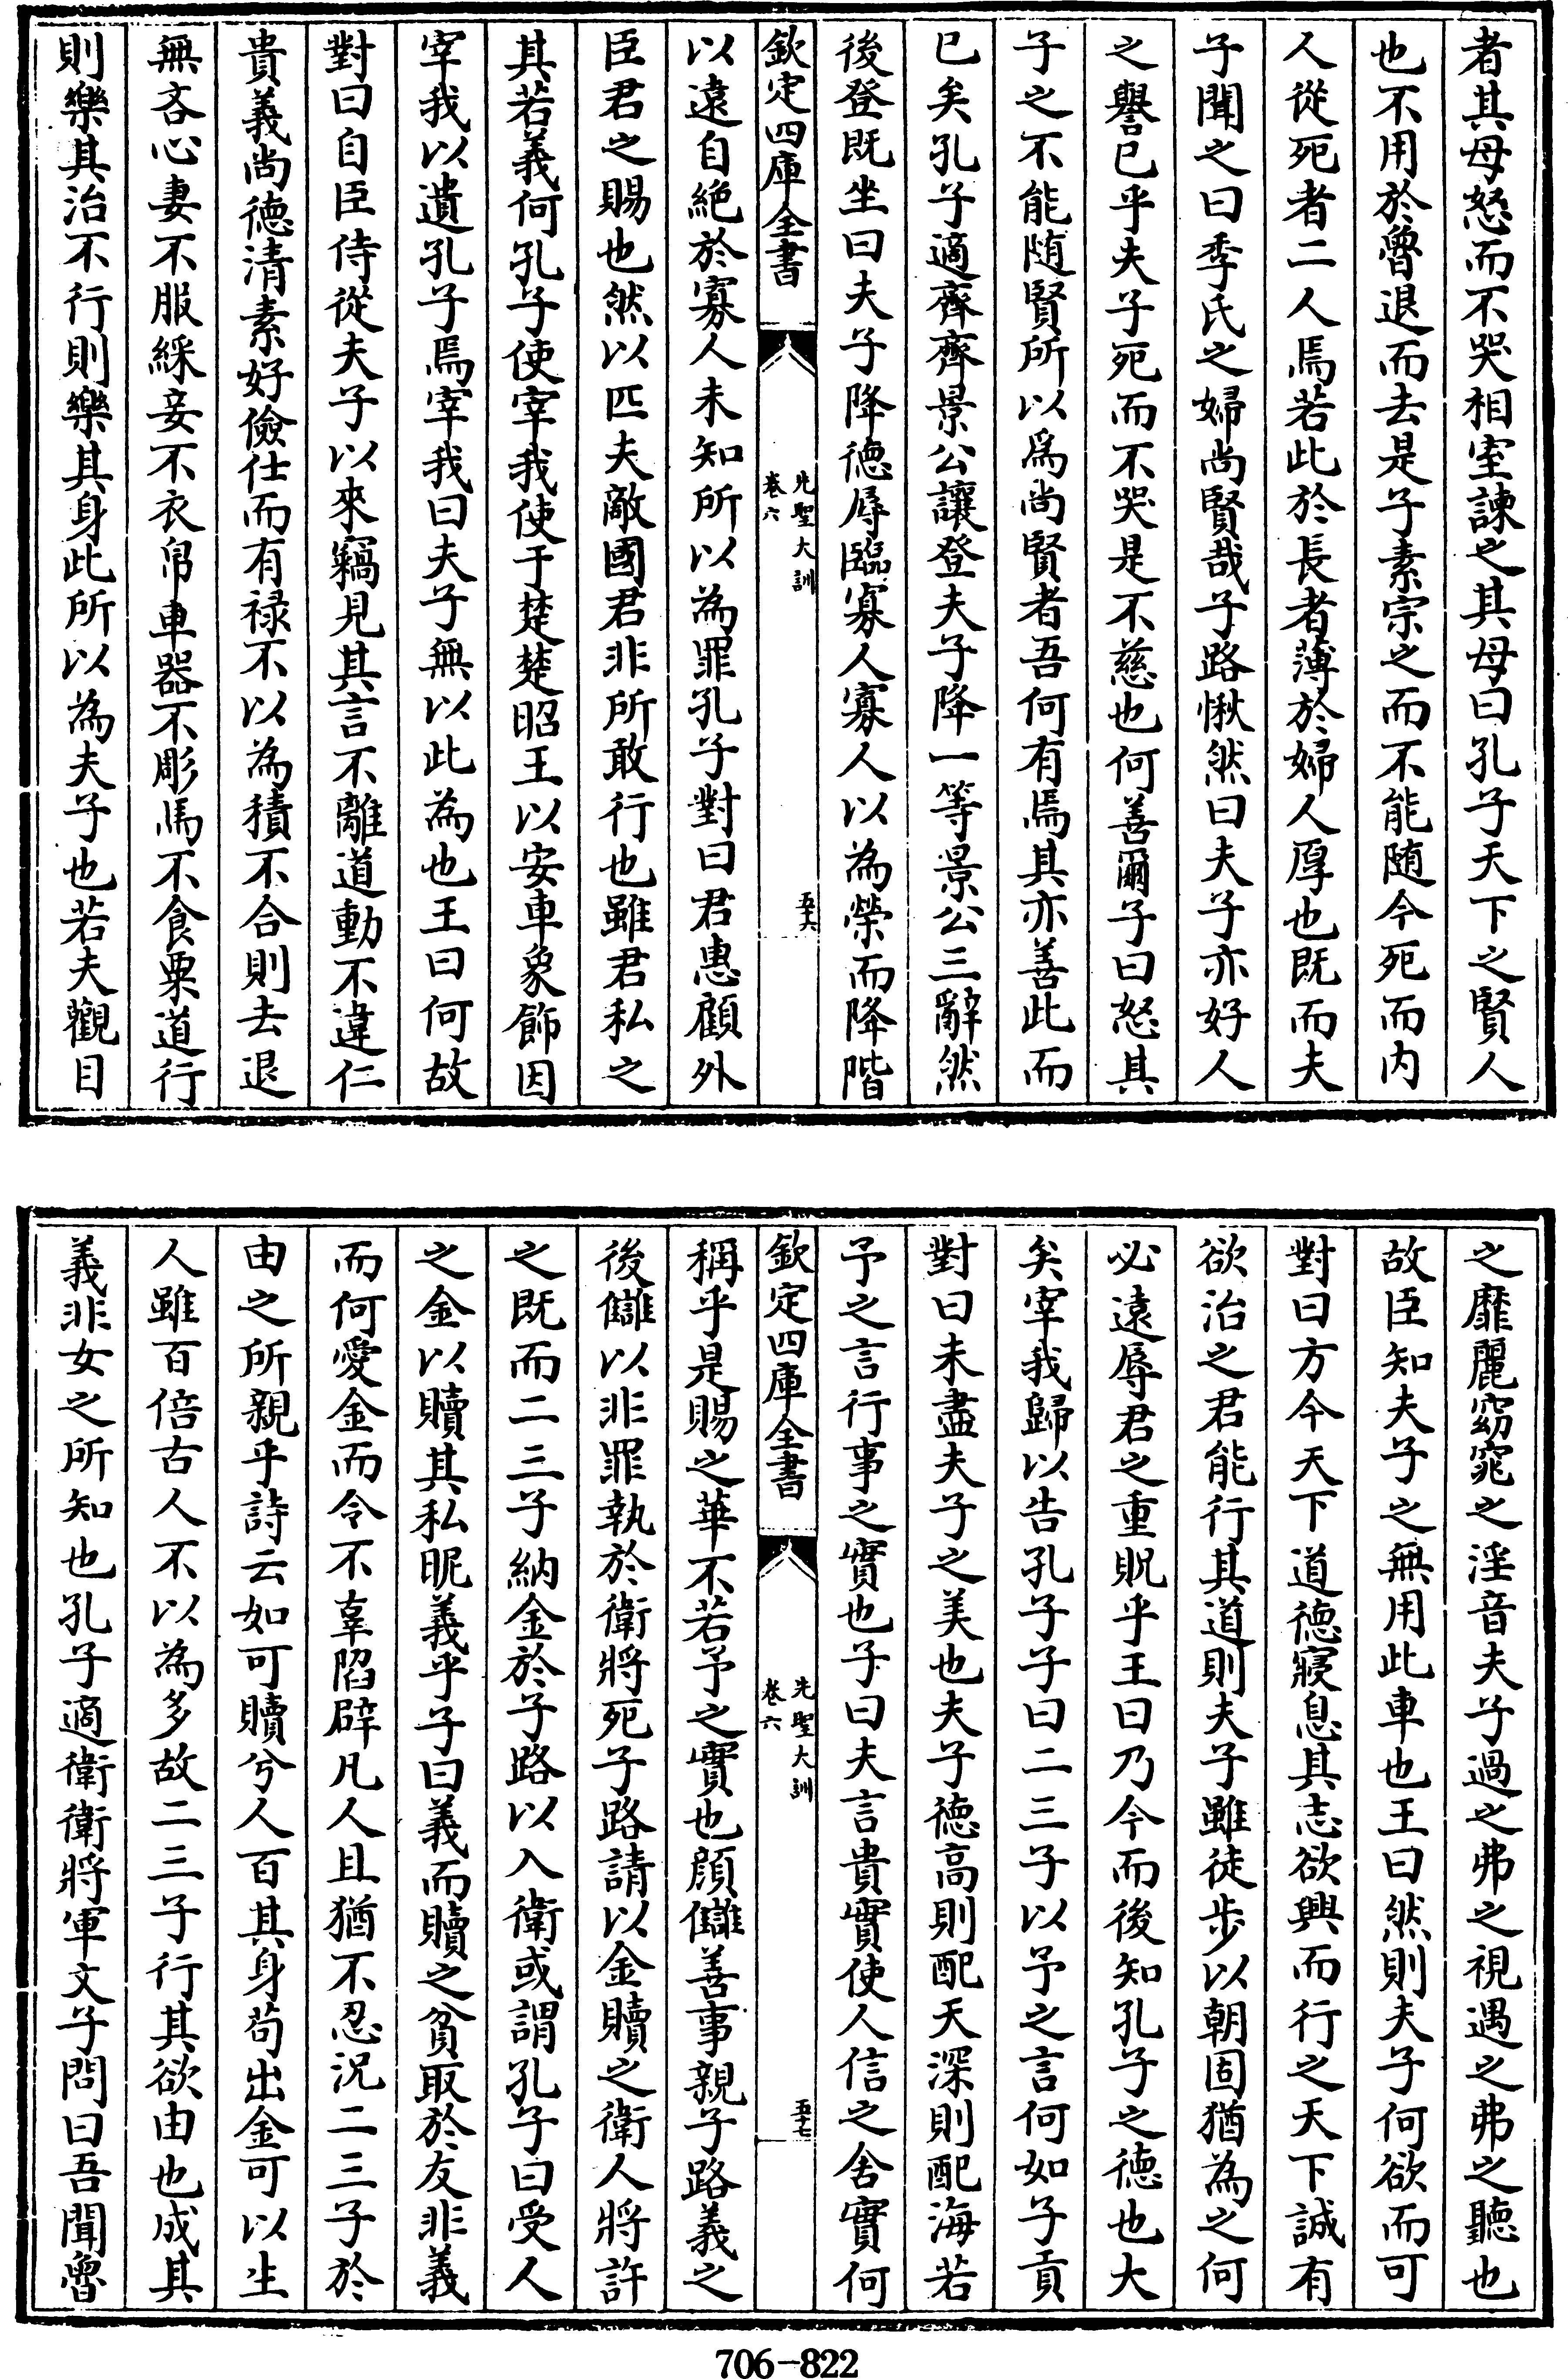 者其母怒而不哭相室諫之其母曰孔子天下之賢人
也不用於魯退而去是子素宗之而不能随今死而内
人從死者二人焉若此於長者薄於婦人厚也既而夫
子聞之曰季氏之婦尚賢哉子路愀然曰夫子亦好人
之譽已乎夫子死而不哭是不慈也何善爾子曰怒其
子之不能随賢所以爲尚賢者吾何有焉其亦善此而
已矣孔子適齊齊景公讓登夫子降一等景公三辭然
後登既坐曰夫子降徳辱臨寡人寡人以為榮而降階
欽定四庫全書
先聖大訓
卷六
五十六
以遠自絶於寡人未知所以為罪孔子對曰君惠顧外
臣君之賜也然以匹夫敵國君非所敢行也雖君私之
其若義何孔子使宰我使于楚楚昭王以安車象飾因
宰我以遺孔子焉宰我曰夫子無以此為也王曰何故
對曰自臣侍從夫子以來竊見其言不離道動不違仁
貴義尚徳清素好儉仕而有禄不以為積不合則去退
無吝心妻不服綵妾不衣帛車器不彫馬不食粟道行
則樂其治不行則樂其身此所以為夫子也若夫觀目
之靡麗窈窕之淫音夫子過之弗之視遇之弗之聽也
故臣知夫子之無用此車也王曰然則夫子何欲而可
對曰方今天下道徳寢息其志欲興而行之天下誠有
欲治之君能行其道則夫子雖徒步以朝固猶為之何
必遠辱君之重貺乎王曰乃今而後知孔子之徳也大
矣宰我歸以告孔子子曰二三子以予之言何如子貢
對曰未盡夫子之美也夫子徳高則配天深則配海若
予之言行事之實也子曰夫言貴實使人信之舍實何
欽定四庫全書
先聖大訓
卷六
五十七
稱乎是賜之華不若予之實也顔讎善事親子路義之
後讎以非罪執於衛將死子路請以金贖之衛人將許
之既而二三子納金於子路以入衛或謂孔子曰受人
之金以贖其私昵義乎子曰義而贖之貧取於友非義
而何愛金而令不辜陷辟凡人且猶不忍況二三子於
由之所親乎詩云如可贖兮人百其身苟出金可以生
人雖百倍古人不以為多故二三子行其欲由也成其
義非女之所知也孔子適衛衛將軍文子問曰吾聞魯
706-822